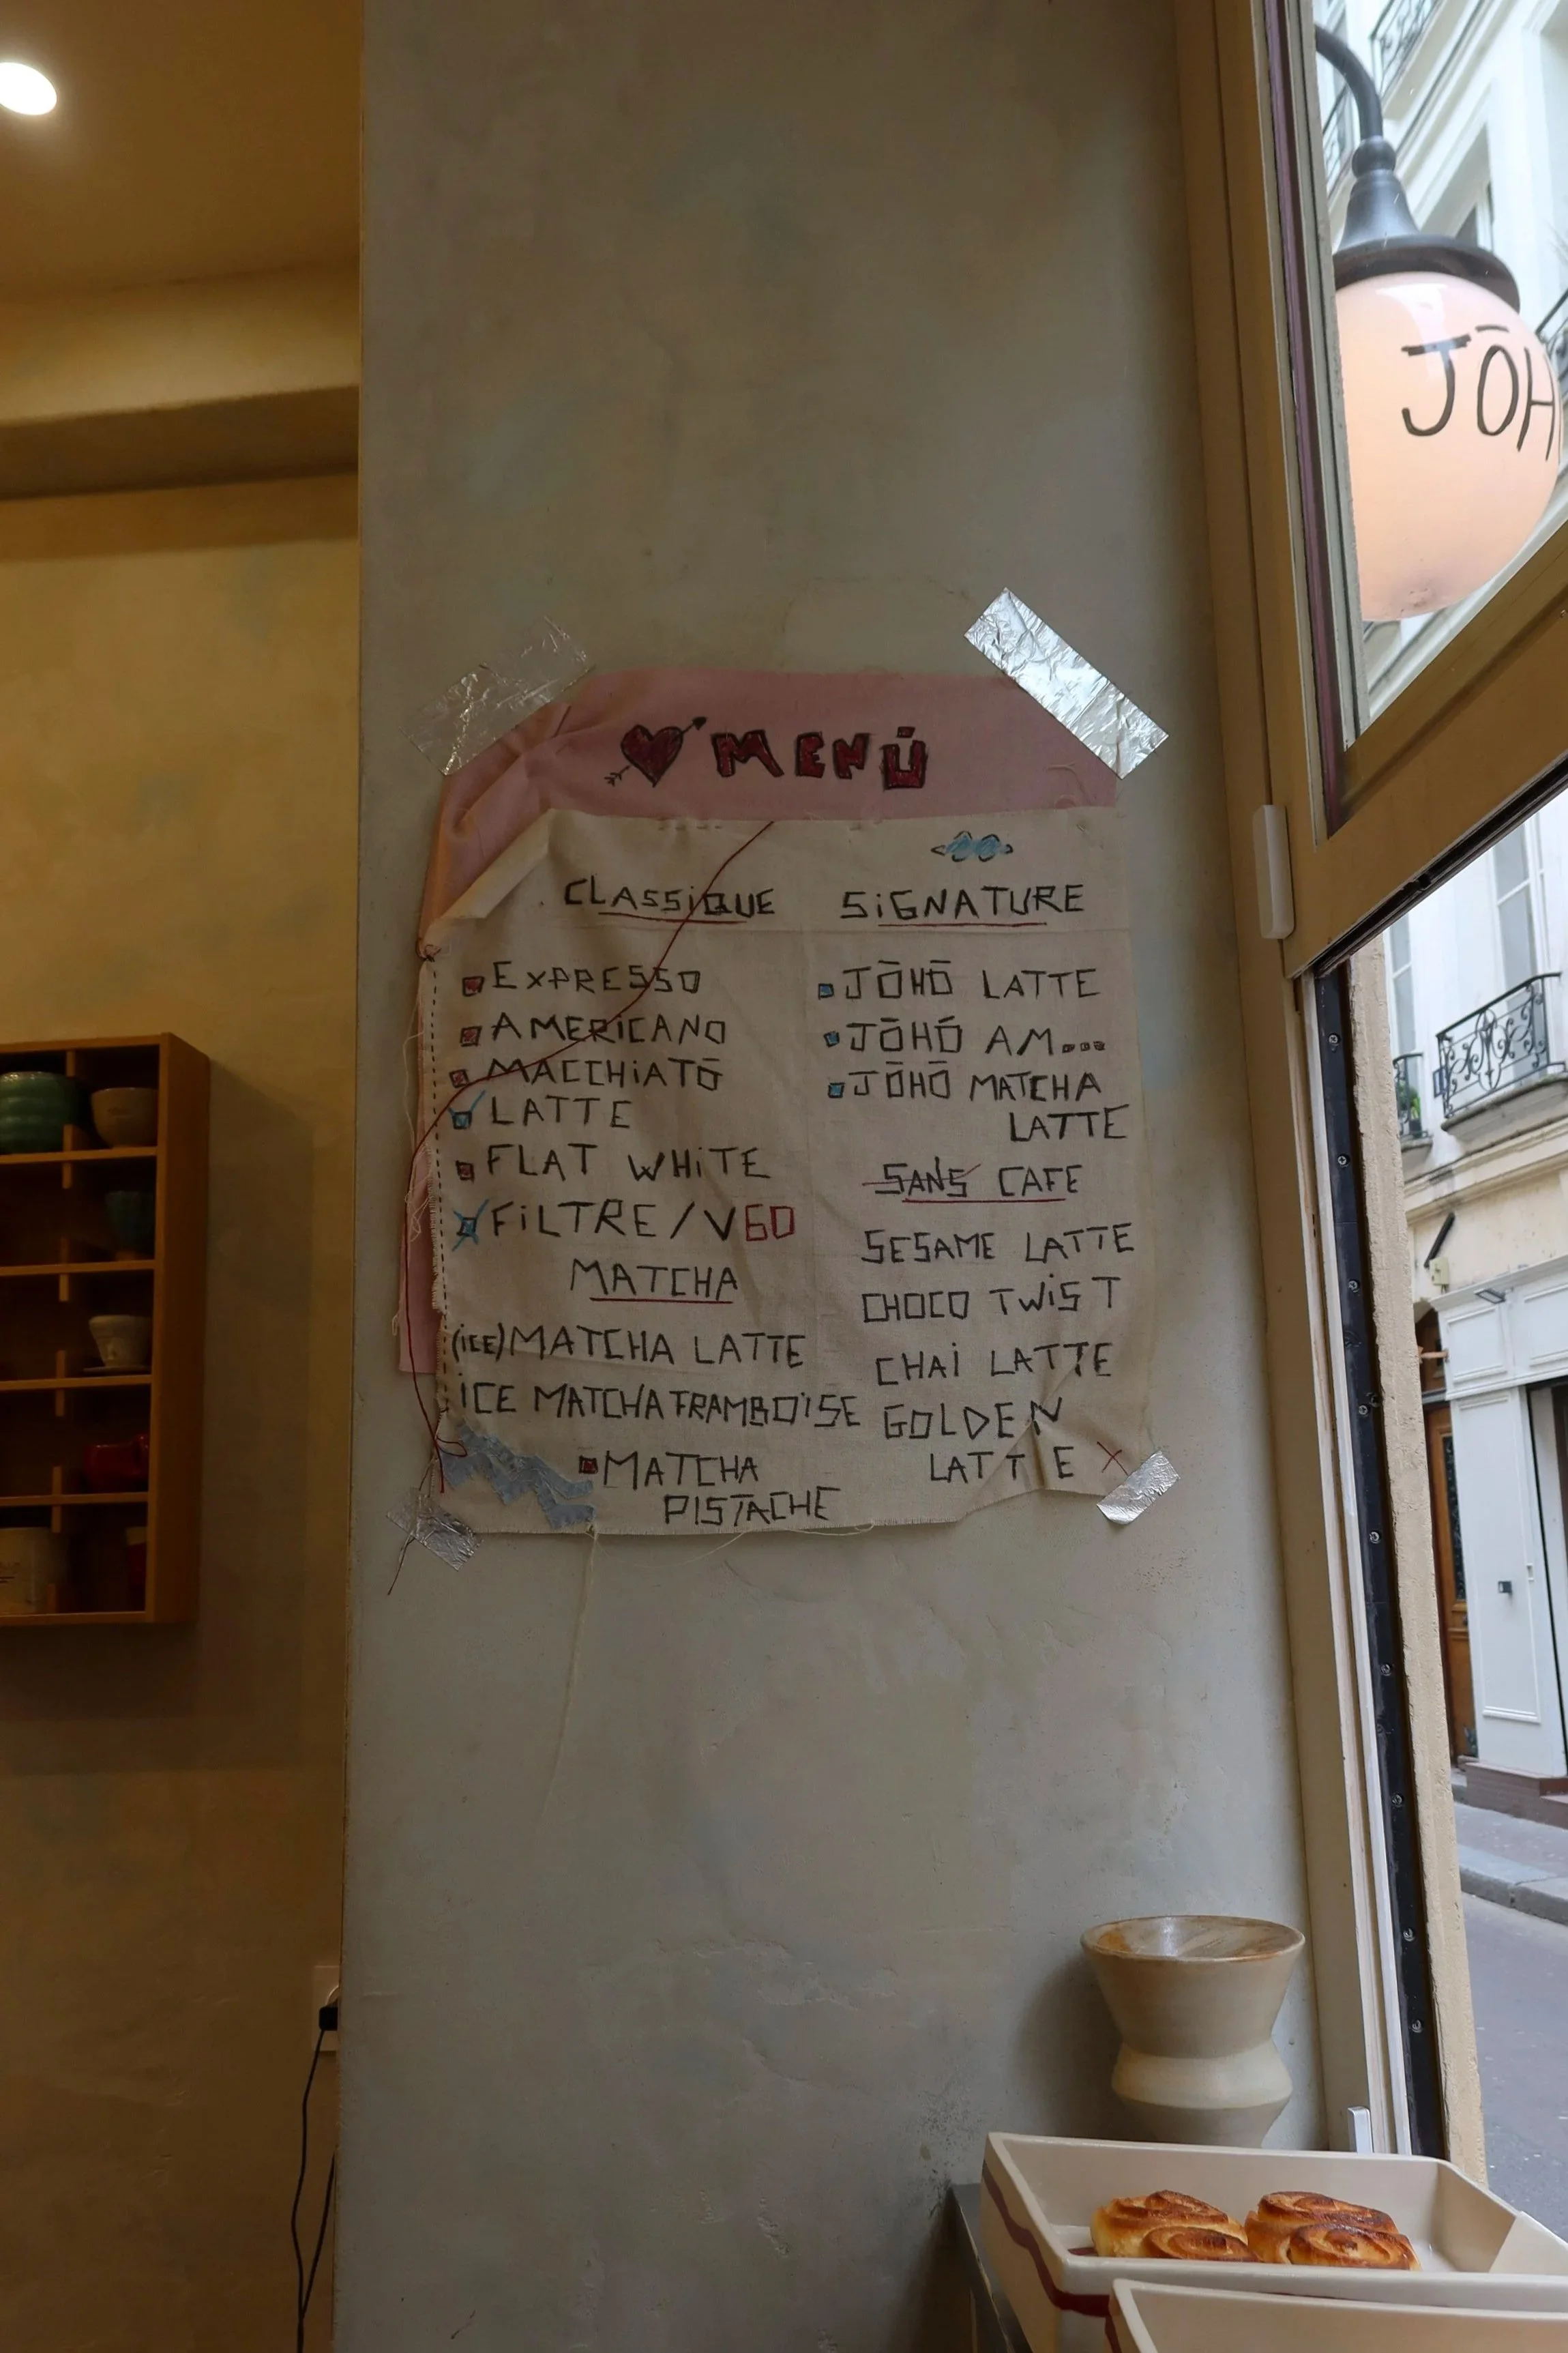 JŌH
MENŪ
CLASSiQUE
EXPRESSO
AMERICANO
MACCHiATŌ
LATTE
FLAT WHiTE
FiLTRE/V60
MATCHA
(iCE) MATCHA LATTE
iCE MATCHA FRAMBOiSE
MATCHA
PISTACHE
SiGNATURE
JŌHŌ LATTE
JŌHŌ AM...
JŌHŌ MATCHA
LATTE
SANS CAFE
SESAME LATTE
CHOCO TWiST
CHAi LATTE
GOLDEN
LATTE